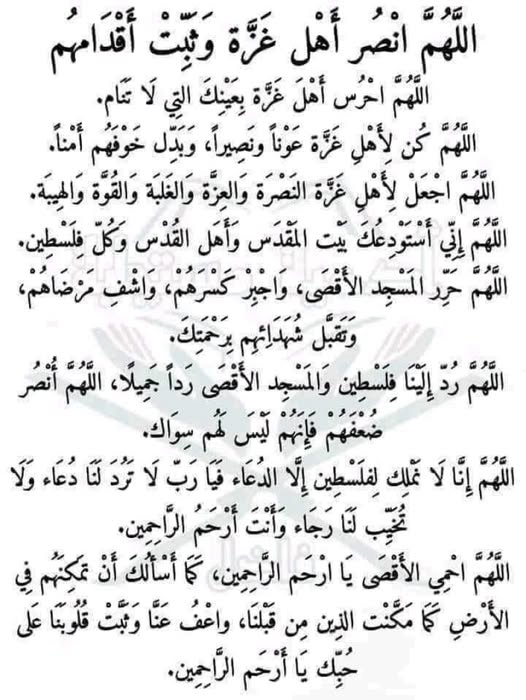 اللَّهُمَّ انْصُر أَهْل غَزَّة وَثَبِّتْ أَقْدَامهُم
اللَّهُمَّ احْرُس أَهْلَ غَزَّة بِعَيْنِكَ التِي لَا تَنَام.
اللَّهُمَّ كُن لِأَهْلِ غَزَّة عَوْناً ونَصِيراً، وَبَدِّل خَوْفَهُم أَمْناً.
اللَّهُمَّ اجْعَلْ لِأَهْلِ غَزَّة النَصْرَة وَالعِزَّة وَالغَلبَة وَالقُوَّة وَالهِيبَة.
اللَّهُمَّ إِنِّي أَسْتَودِعُكَ بيت المَقْدَس وَأَهَل القُدْس وَكُلّ فِلَسْطِين.
اللَّهُمَّ حَرِّر المَسْجِد الأَقْصَى، وَاجْبِرْ كَسْرَهُم، وَاشْفِ مَرْضَاهُمْ،
وَتَقبَّل شُهَدَائِهِم بِرَحْمَتِكَ.
اللَّهُمَّ رُدّ إِلَيْنَا فِلَسْطِين وَالمَسْجِد الأَقْصَى رَداً جَمِيلًا، اللَّهُمَّ أُنْصُر
ضُعْفَهُمْ فَإِنَهُمْ لَيْسَ لَهُم سِوَاك.
اللَّهُمَّ إِنَّا لَا نَمْلِك لِفِلَسْطِين إِلَّا الدُعَاء فَيَا رَبّ لَا تَرُدَ لَنَا دُعَاء وَلَا
تُخَيِّب لَنَا رَجَاء وَأَنْتَ أَرْحَمُ الرَّاحِمِين.
اللَّهُمَّ احْمِي الأَقْصَى يَا ارْحَم الرَّاحِمِين، كَمَا أَسْأَلُكَ أَنْ تُمَكِنَهُم فِي
الأَرْضِ كَمَا مَكَّنْت الذِين مِن قَبْلنَا، واعْفُ عَنَّا وَثَبَّتْ قُلُوبَنَا عَلَى
حُبِّك يَا أَرْحَم الرَّاحِمِين.